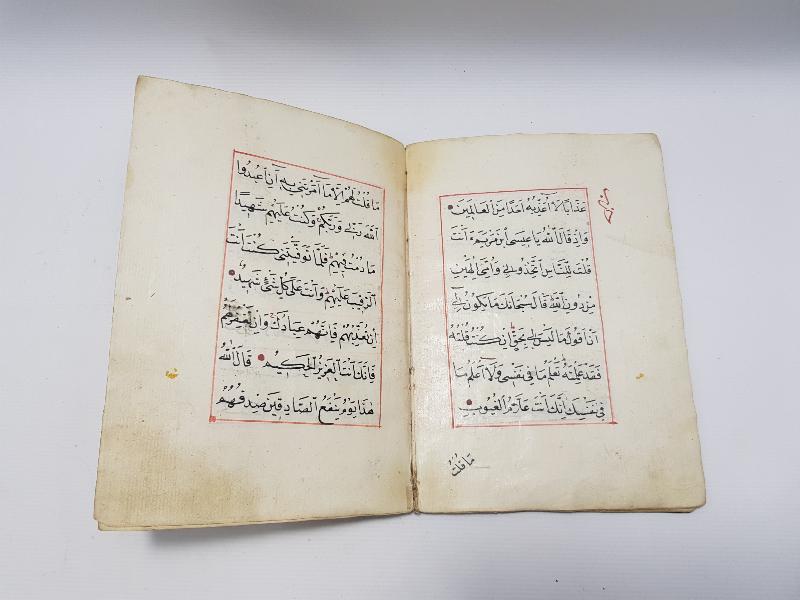 عَذَابًا لَا أُعَذِّبُهُ أَحَدًا مِنَ الْعَالَمِينَ
وَإِذْ قَالَ اللَّهُ يَا عِيسَى ابْنَ مَرْيَمَ ءَ أَنْتَ
قُلْتَ لِلنَّاسِ اتَّخِذُونِي وَأُمِّيَ إِلٰهَيْنِ
مِنْ دُونِ اللَّهِ قَالَ سُبْحَانَكَ مَا يَكُونُ لِي
أَنْ أَقُولَ مَا لَيْسَ لِي بِحَقٍّ إِنْ كُنْتُ قُلْتُهُ
فَقَدْ عَلِمْتَهُ تَعْلَمُ مَا فِي نَفْسِي وَلَا أَعْلَمُ مَا
فِي نَفْسِكَ إِنَّكَ أَنْتَ عَلَّامُ الْغُيُوبِ
مَا قُلْتُ
مَا قُلْتُ لَهُمْ إِلَّا مَا أَمَرْتَنِي بِهِ أَنِ اعْبُدُوا
اللَّهَ رَبِّي وَرَبَّكُمْ وَكُنْتُ عَلَيْهِمْ شَهِيدًا
مَا دُمْتُ فِيهِمْ فَلَمَّا تَوَفَّيْتَنِي كُنْتَ أَنْتَ
الرَّقِيبَ عَلَيْهِمْ وَأَنْتَ عَلَى كُلِّ شَيْءٍ شَهِيدٌ
إِنْ تُعَذِّبْهُمْ فَإِنَّهُمْ عِبَادُكَ وَإِنْ تَغْفِرْ لَهُمْ
فَإِنَّكَ أَنْتَ الْعَزِيزُ الْحَكِيمُ قَالَ اللَّهُ
هٰذَا يَوْمُ يَنْفَعُ الصَّادِقِينَ صِدْقُهُمْ